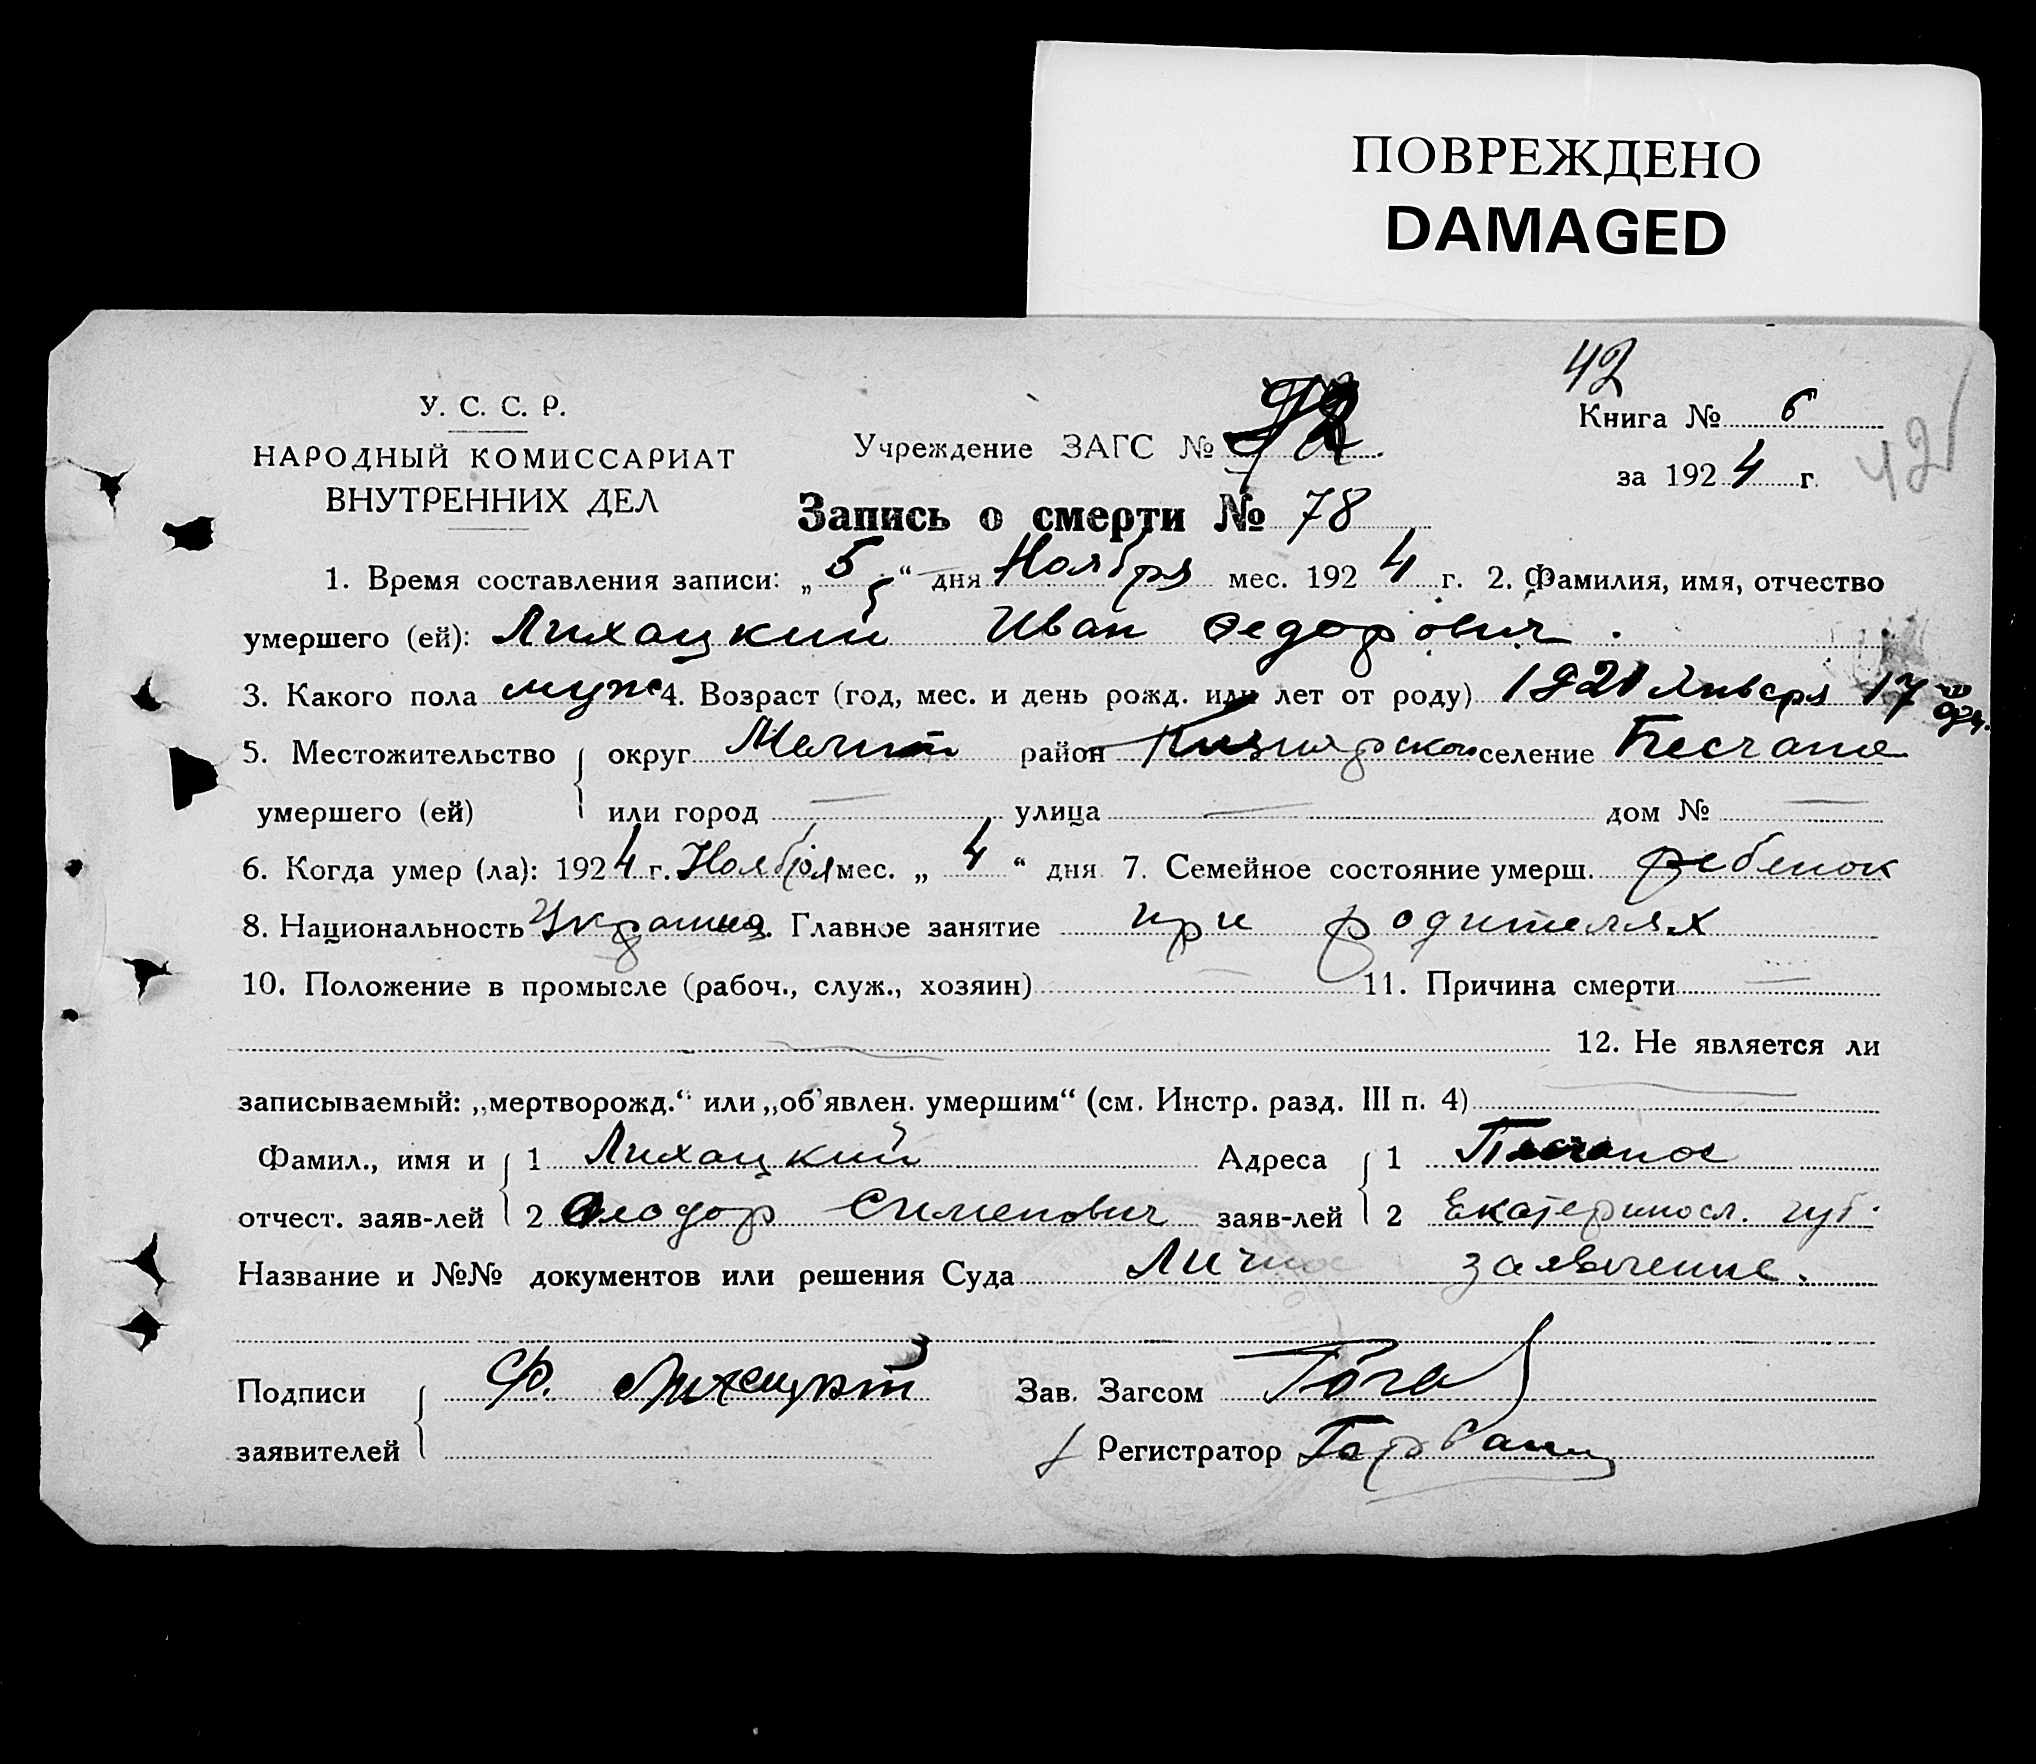 ПОВРЕЖДЕНО
DAMAGED
42
У. С. С. Р.
НАРОДНЫЙ КОМИССАРИАТ
ВНУТРЕННИХ ДЕЛ
Учреждение ЗАГС №
Книга № 6
за 1924 г.
42
Запись о смерти № 78
1. Время составления записи: „5“ дня Ноября мес. 1924 г. 2. Фамилия, имя, отчество
умершего (ей): Лихацкий Иван Федорович.
3. Какого пола муж 4. Возраст (год, мес. и день рожд. или лет от роду) 1921 Января 17
5. Местожительство умершего (ей) округ Мелит район селение Песчаное
или город — улица — дом № —
6. Когда умер (ла): 1924 г. Ноября мес. „4“ дня 7. Семейное состояние умерш. ребенок
8. Национальность 9. Главное занятие при родителях
10. Положение в промысле (рабоч., служ., хозяин) — 11. Причина смерти —
— 12. Не является ли
записываемый: „мертворожд.“ или „об'явлен. умершим“ (см. Инстр. разд. III п. 4) —
Фамил., имя и отчест. заяв-лей 1 Лихацкий Адреса заяв-лей 1 Песчаное
2 Феодор Сименович 2 Екатериносл. губ.
Название и №№ документов или решения Суда Личное заявление.
Подписи заявителей Ф. Лихацкий Зав. Загсом
Регистратор